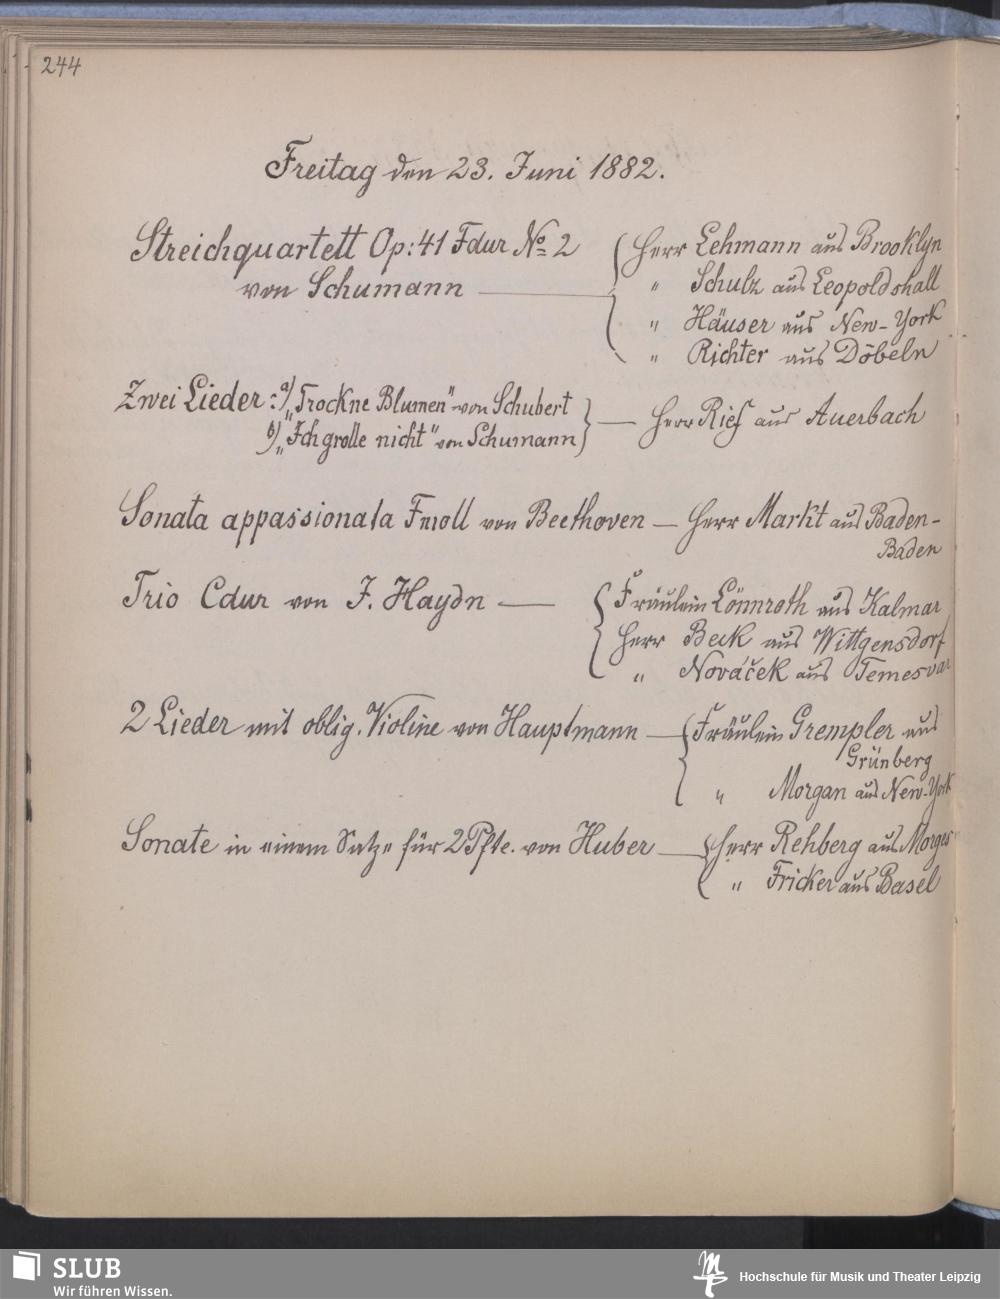 244
Freitag den 23. Juni 1882.
Streichquartett Op: 41 Fdur No 2
von Schumann —
Herr Lehmann aus Brooklyn
" Schulz aus Leopoldshall
" Häuser aus New-York
" Richter aus Döbeln
Zwei Lieder: a) „Trockne Blumen" von Schubert
b) „Ich grolle nicht" von Schumann — Herr Rieß aus Auerbach
Sonata appassionata Fmoll von Beethoven — Herr Markt aus Baden-
Baden
Trio Cdur von J. Haydn —
Fräulein Lönnroth aus Kalmar
Herr Beck aus Wittgensdorf
" Nováček aus Temesvar
2 Lieder mit oblig. Violine von Hauptmann — Fräulein Grempler aus
Grünberg
" Morgan aus New-York
Sonate in einem Satze für 2 Pfte. von Huber — Herr Rehberg aus Morges
" Fricker aus Basel
SLUB
Wir führen Wissen.
Hochschule für Musik und Theater Leipzig